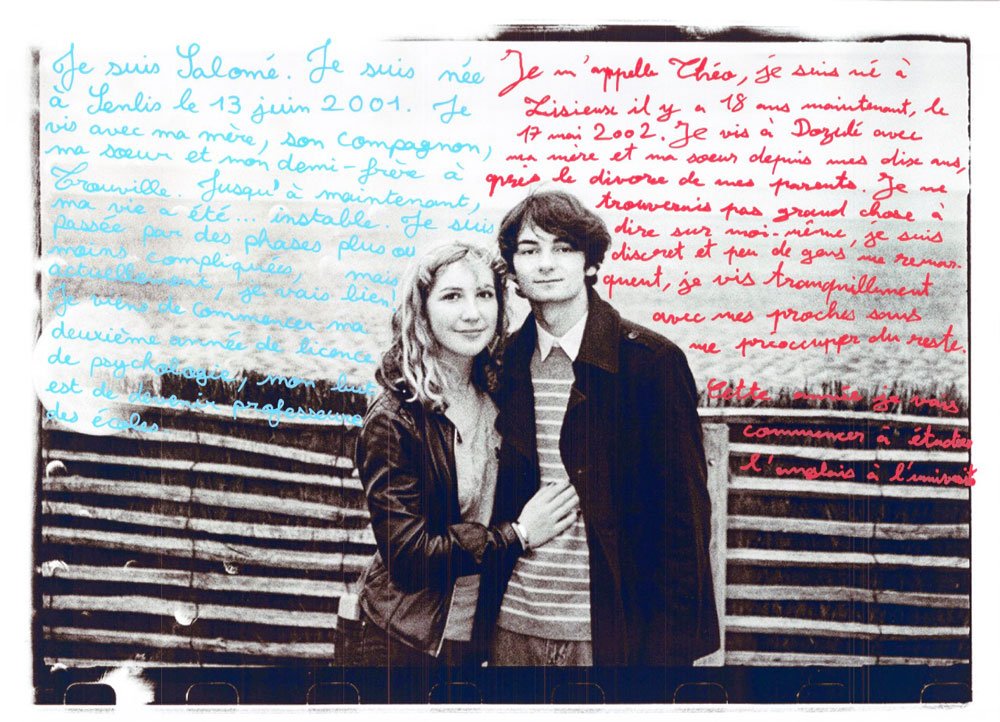 Je suis Salomé. Je suis née
à Senlis le 13 juin 2001. Je
vis avec ma mère, son compagnon,
ma sœur et mon demi-frère à
Trouville. Jusqu'à maintenant,
ma vie a été... instable. Je suis
passée par des phases plus ou
moins compliquées, mais
actuellement, je vais bien!
Je viens de commencer ma
deuxième année de licence
de psychologie, mon but
est de devenir professeure
des écoles
Je m'appelle Théo, je suis né à
Lisieux il y a 18 ans maintenant, le
17 mai 2002. Je vis à Dozulé avec
ma mère et ma soeur depuis mes dix ans,
après le divorce de mes parents. Je ne
trouverais pas grand chose à
dire sur moi-même, je suis
discret et peu de gens me remar-
quent, je vis tranquillement
avec mes proches sans
me préoccuper du reste.
Cette année je vais
commencer à étudier
l'anglais à l'université